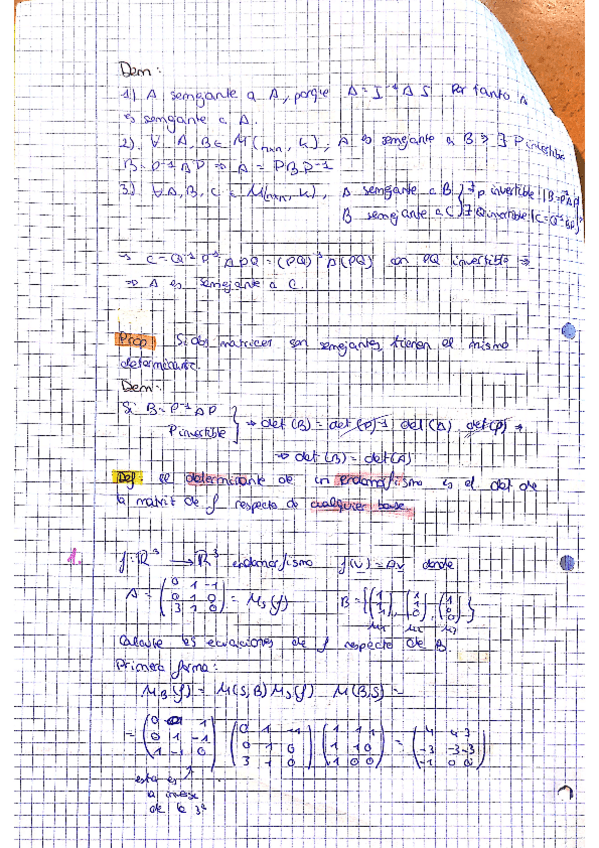 Dem:
1) A semejante a A, porque A = I⁻¹ A I Por tanto A
es semejante a A.
2) ∀ A, B ∈ M(nxn, K), A es semejante a B ⇒ ∃ P invertible
B = P⁻¹AP ⇒ A = PBP⁻¹
3) ∀ A, B, C ∈ M(nxn, K), A semejante a B } ∃ P invertible | B = P⁻¹AP
B semejante a C } ∃ Q invertible | C = Q⁻¹BP
⇒ C = Q⁻¹P⁻¹APQ = (PQ)⁻¹A(PQ) con PQ invertible ⇒
⇒ A es semejante a C.
Prop: Si dos matrices son semejantes tienen el mismo
determinante.
Dem:
Si B = P⁻¹AP
P invertible } ⇒ det(B) = det(P)⁻¹ det(A) det(P) ⇒
⇒ det(B) = det(A)
Def: el determinante de un endomorfismo es el det de
la matriz de f respecto de cualquier base
1. f: ℝ³ → ℝ³ endomorfismo f(v) = Av donde
A = (0 1 -1 / 0 1 0 / 3 1 0) = M_S(f) B = {(1 1 1), (1 1 0), (1 0 0)}
u₁ u₂ u₃
Calcula las ecuaciones de f respecto de B.
Primera forma:
M_B(f) = M(S,B) M_S(f) M(B,S) =
= (0 0 1 / 0 1 -1 / 1 -1 0) (0 1 -1 / 0 1 0 / 3 1 0) (1 1 1 / 1 1 0 / 1 0 0) = (4 4 3 / -3 -3 -3 / -1 0 0)
esta es
la inversa
de la 3ª